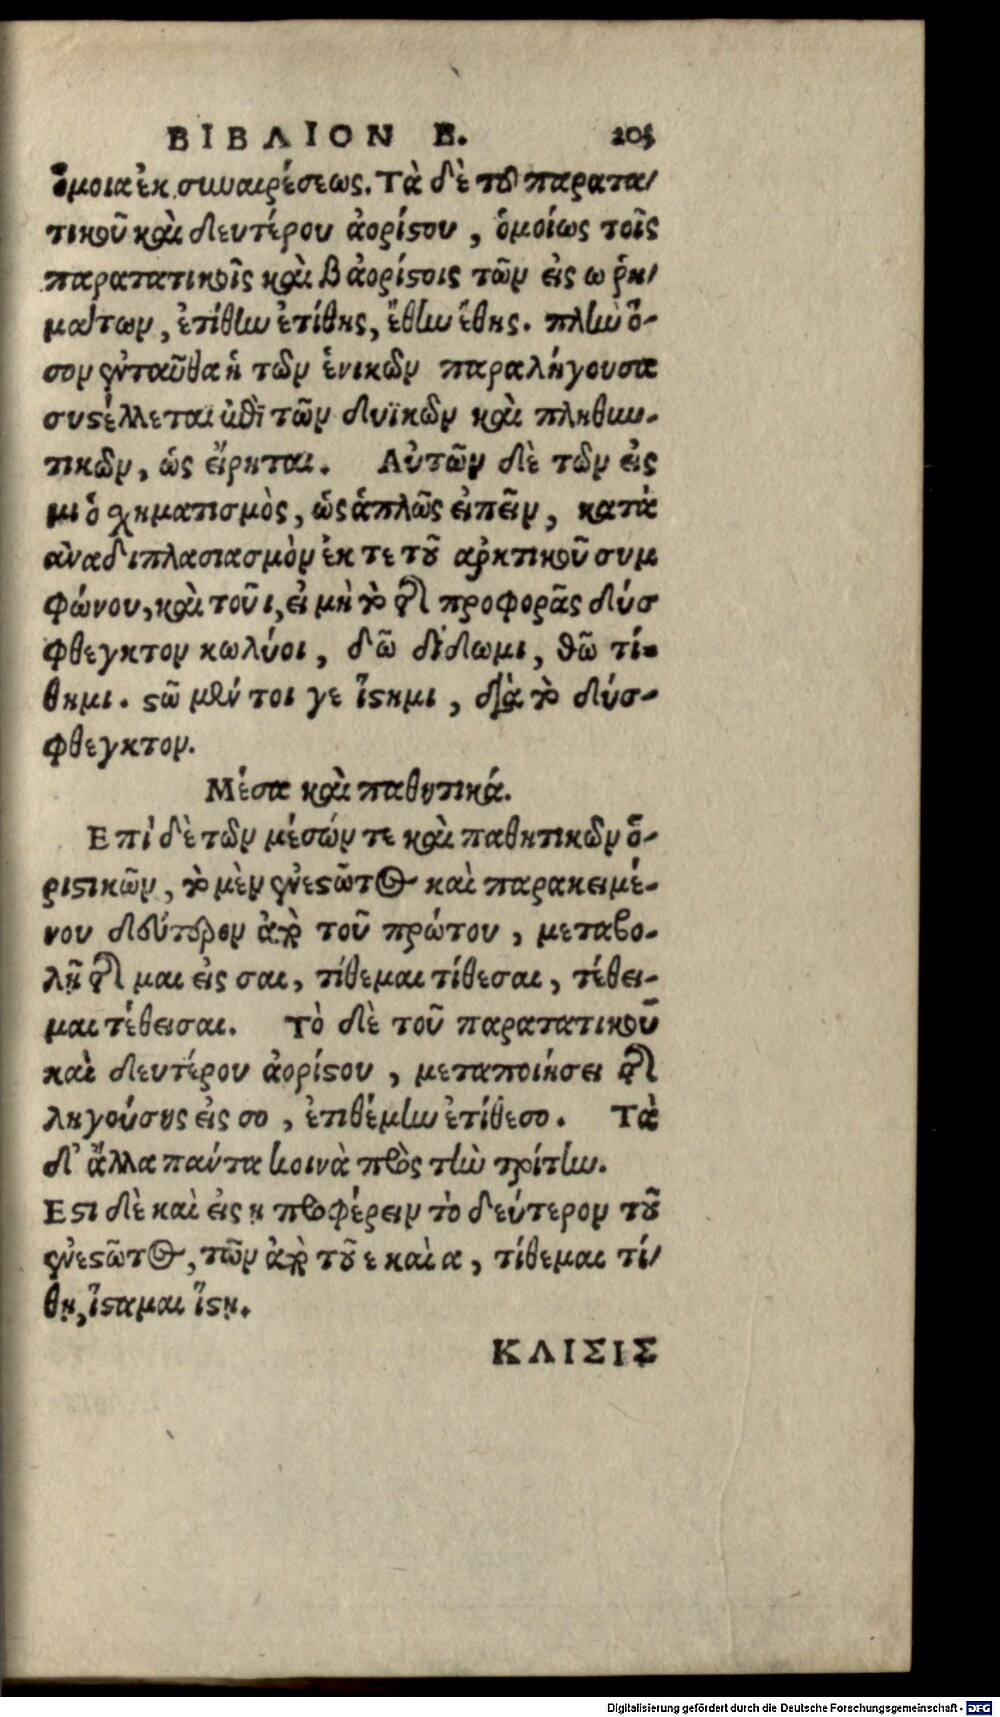 ΒΙΒΛΙΟΝ Β. 205
ὅμοια ἐκ συναιρέσεως. Τὰ δὲ τοῦ παρατα/
τικοῦ καὶ δευτέρου ἀορίστου, ὁμοίως τοῖς
παρατατικοῖς καὶ β ἀορίστοις τῶν εἰς ω ῥη/
μάτων, ἐτίθην ἐτίθης, ἔθην ἔθης. πλὴν ὅ-
σον ἐνταῦθα ἡ τῶν ἑνικῶν παραλήγουσα
συστέλλεται ἐπὶ τῶν δυϊκῶν καὶ πληθυν-
τικῶν, ὡς εἴρηται. Αὐτῶν δὲ τῶν εἰς
μι ὁ χηματισμὸς, ὡς ἁπλῶς εἰπεῖν, κατὰ
ἀναδιπλασιασμὸν ἔκ τε τοῦ αρκτικοῦ συμ
φώνου, καὶ τοῦ ι, εἰ μὴ τὸ τῆς προφορᾶς δύσ
φθεγκτον κωλύοι, δῶ δίδωμι, θῶ τί-
θημι. στῶ μέν τοι γε ἵστημι, διὰ τὸ δύσ-
φθεγκτον.
Μέσα καὶ παθητικά.
Επὶ δὲ τῶν μέσων τε καὶ παθητικῶν ὁ-
ριστικῶν, τὸ μὲν ἐνεστῶτος καὶ παρακειμέ-
νου δεύτερον ἀπὸ τοῦ πρώτου, μεταβο-
λῇ τῆς μαι εἰς σαι, τίθεμαι τίθεσαι, τέθει-
μαι τέθεισαι. Τὸ δὲ τοῦ παρατατικοῦ
καὶ δευτέρου ἀορίστου, μεταποιήσει τῆς
ληγούσης εἰς σο, ἐτιθέμην ἐτίθεσο. Τὰ
δ' ἄλλα πάντα κοινὰ πρὸς τὴν τρίτην.
Εστι δὲ καὶ εἰς ῃ προφέρειν τὸ δεύτερον τοῦ
ἐνεστῶτος, τῶν ἀπὸ τοῦ ε καὶ α, τίθεμαι τί/
θῃ, ἵσταμαι ἵστῃ.
ΚΛΙΣΙΣ
Digitalisierung gefördert durch die Deutsche Forschungsgemeinschaft - DFG